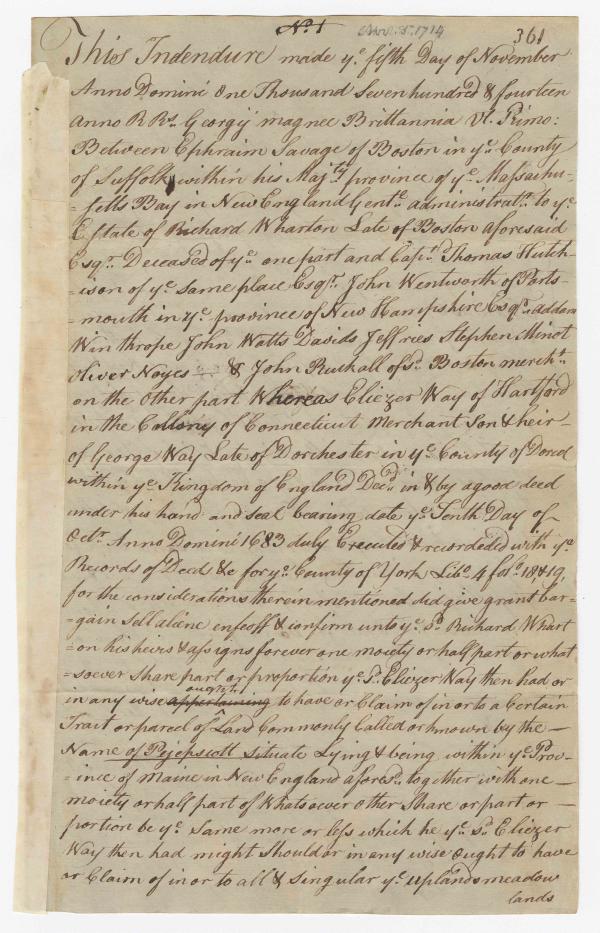 No 1 Nov. 5. 1714 361
This Indendure made ye. fifth Day of November
Anno Domini One Thousand Seven hundred & fourteen
Anno R Rs. Georgij magnee Brittannia &c. Primo:
Between Ephraim Savage of Boston in ye. County
of Suffolk within his Majtys province of ye. Massachu-
-setts Bay in New England Gentn. administratr. to ye.
Estate of Richard Wharton Late of Boston aforesaid
Esqr. Deceased of ye. one part and Capt. Thomas Hutch-
-ison of ye. same place Esqr. John Wentworth of Ports-
-mouth in ye. province of New Hampshire Esqr. addam
Winthrope John Watts Davids Jeffries Stephen Minot
Oliver Noyes & John Ruchall of sd. Boston merchts.
on the Other part Whereas Eliezer Way of Hartford
in the Collony of Connecticut Merchant Son & heir-
of George Way Late of Dorchester in ye. County of Dorcet
within ye. Kingdom of England Decd. in & by a good deed
under his hand and seal bearing date ye. Tenth Day of-
Octr. Anno Domini 1683 duly Executed & recordeded with ye.
Records of Deeds &c for ye. County of York Libo. 4 folo. 18 & 19,
for the considerations therein mentioned did give grant bar-
=gain sell aliene enfeoff & confirm unto ye. sd. Richard Whart
=on his heirs & assigns forever one moiety or half part or what
=soever share part or proportion ye. sd. Eliezer Way then had or
ought
in any wise appertaining to have or Claim of in or to a Certain
Tract or parcel of Land Commonly Called or known by the -
Name of Pejepscott situate Lying & being within ye. Prov-
=ince of Maine in New England aforesd. together with one -
moiety or half part of Whatsoever Other Share or part or -
portion be ye. Same more or less which he ye. sd. Eliezer
Way then had might Should or in any wise Ought to have
or Claim of in or to all & Singular ye. uplands meadow
lands